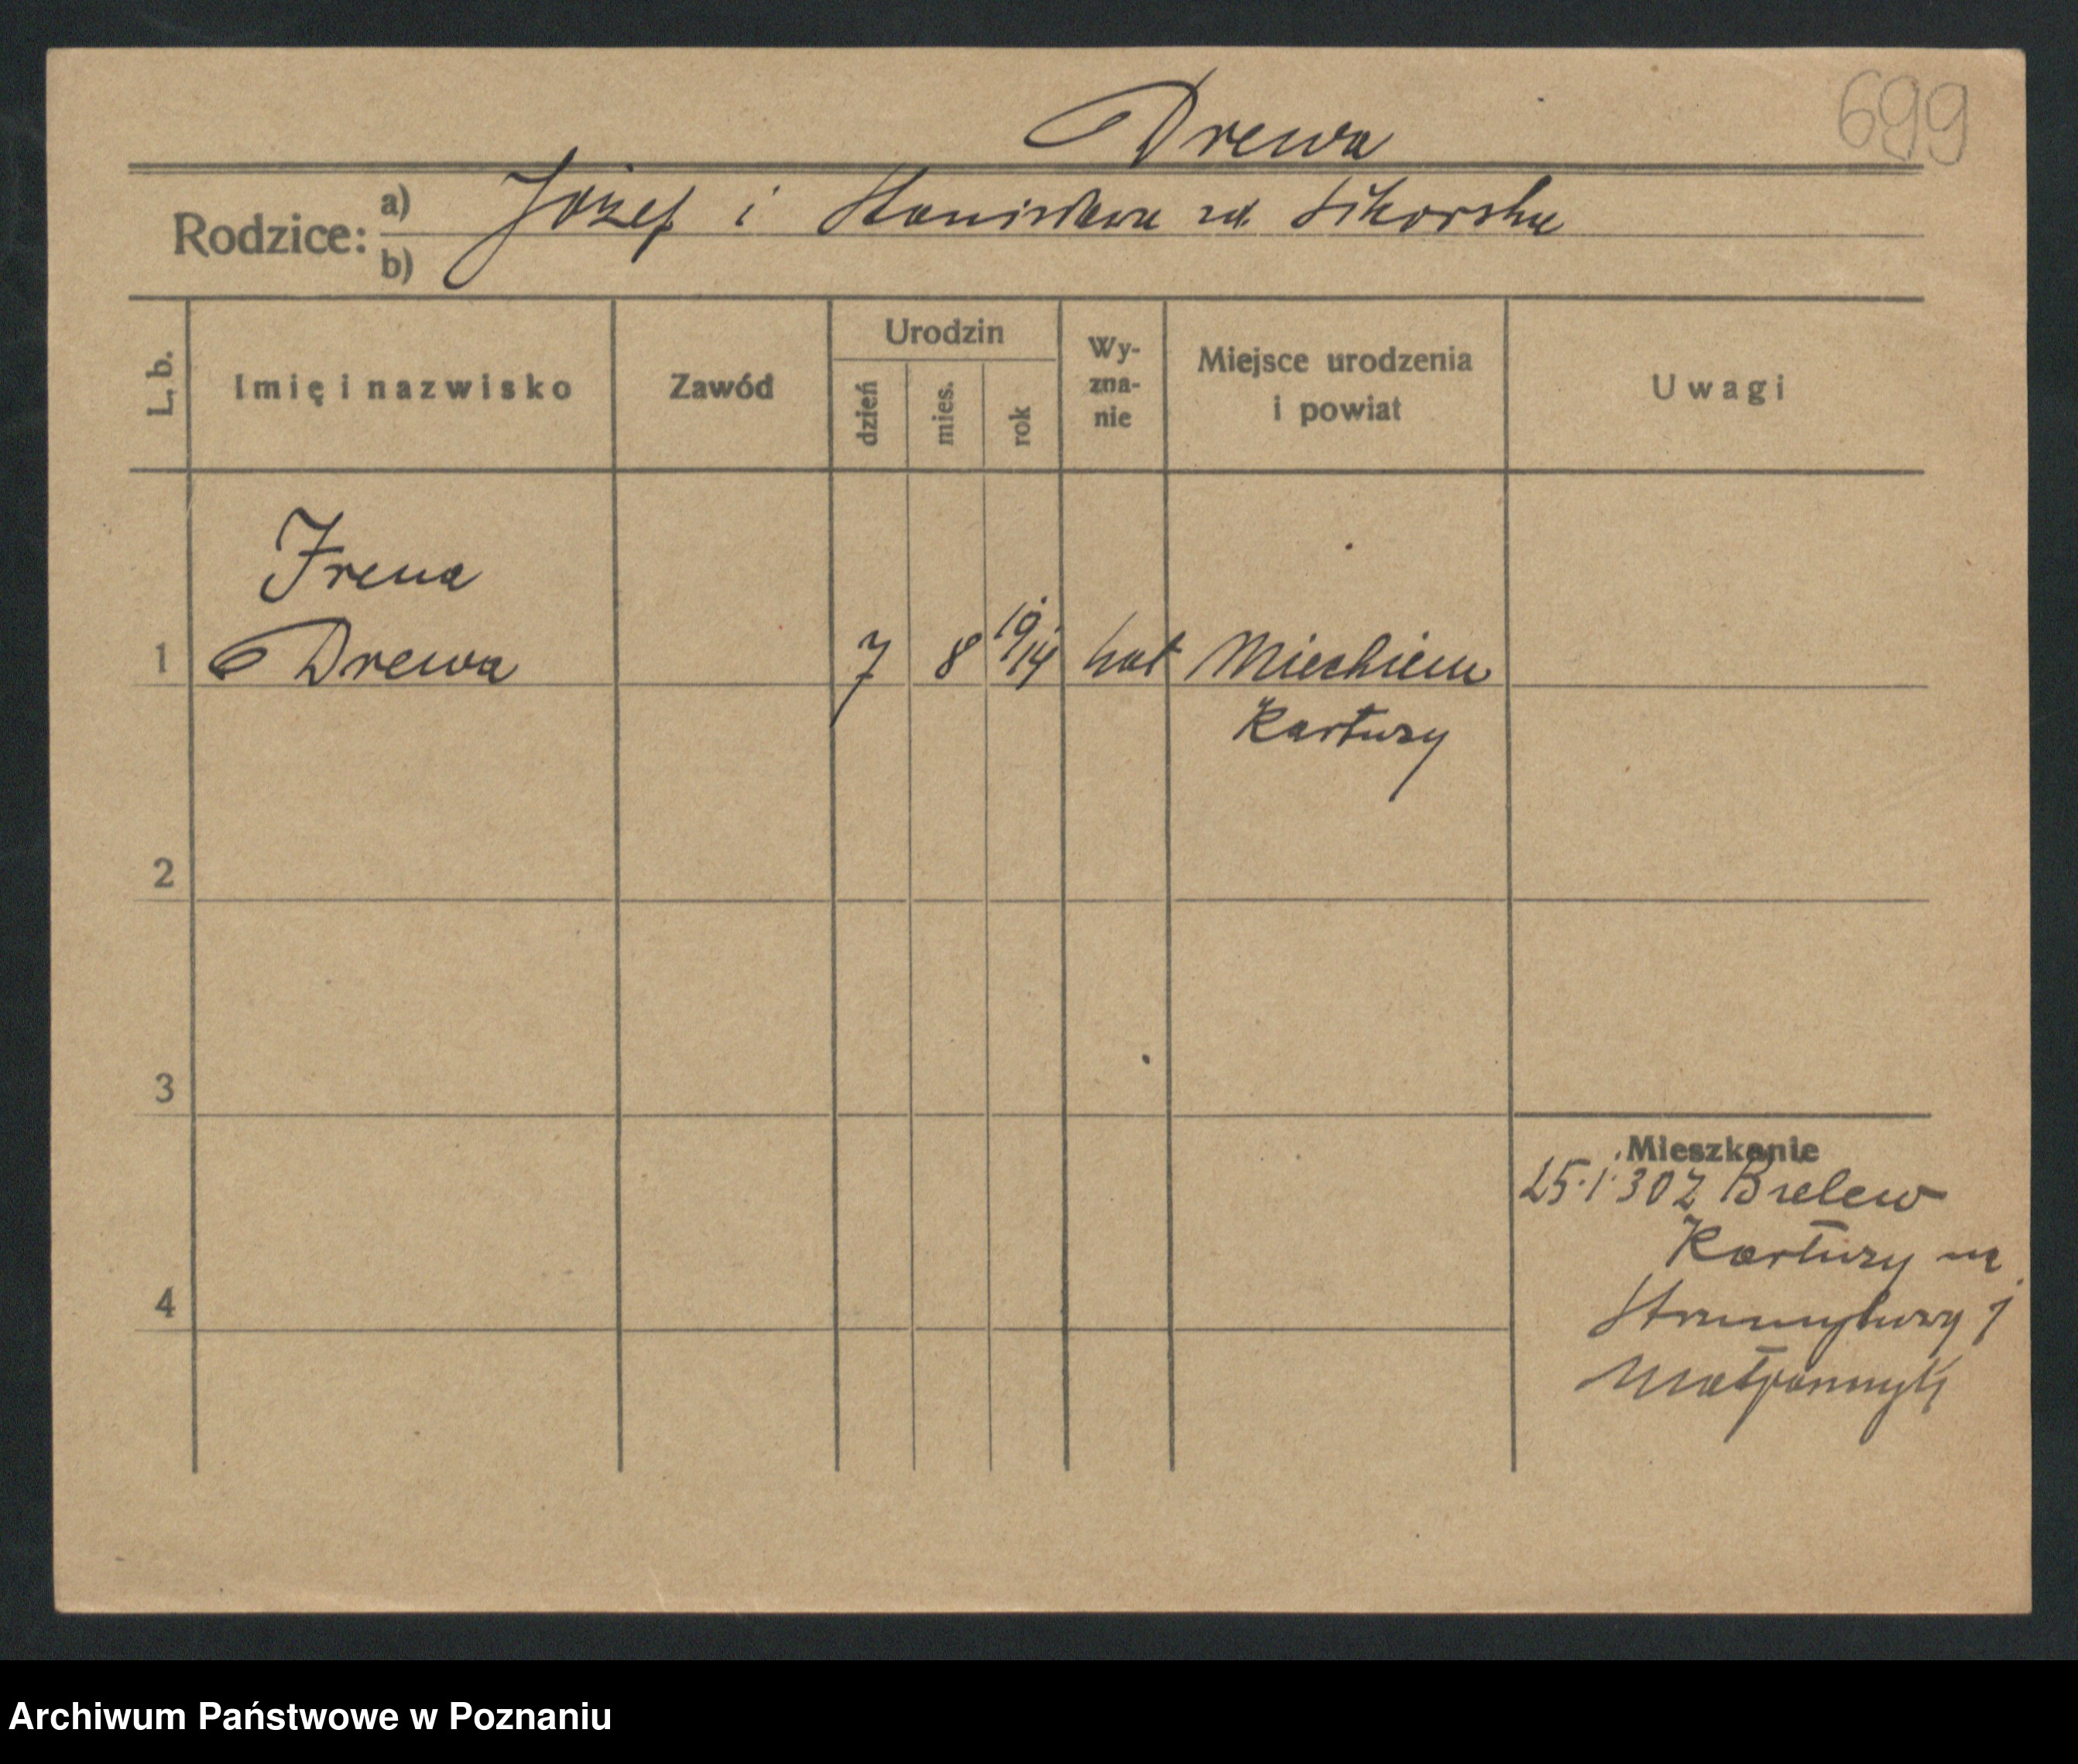 699
Drewa
Rodzice: a) Józef i Stanisława zd. Sikorska
b)
L. b. Imię i nazwisko Zawód Urodzin dzień mies. rok Wyzna-nie Miejsce urodzenia i powiat Uwagi
Irena
1 Drewa 7 8 19/14 kat Miechucin
Kartuzy
2
3
Mieszkanie
25.1.30 z
Kartuzy na
4
Archiwum Państwowe w Poznaniu